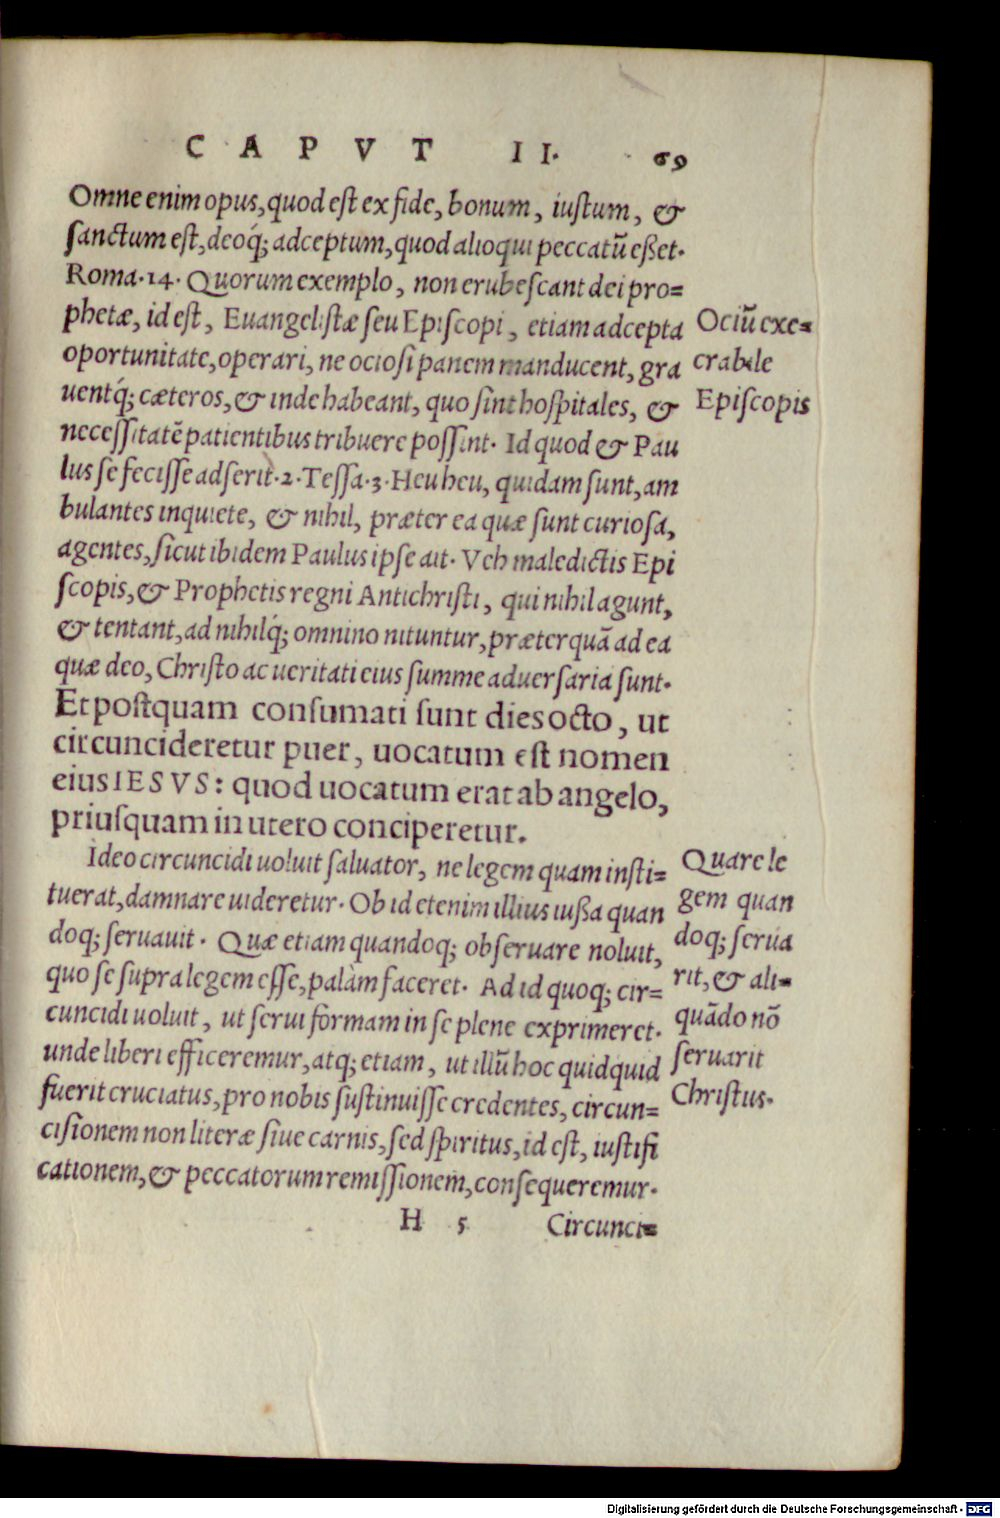 CAPVT II. 69
Omne enim opus, quod est ex fide, bonum, iustum, &
sanctum est, deoq́; adceptum, quod alioqui peccatũ eßet.
Roma.14. Quorum exemplo, non erubescant dei pro=
phetæ, id est, Euangelistæ seu Episcopi, etiam adcepta
oportunitate, operari, ne ociosi panem manducent, gra
uentq́; cæteros, & inde habeant, quo sint hospitales, &
necessitatẽ patientibus tribuere possint. Id quod & Pau
lus se fecisse adserit.2.Tessa.3. Heu heu, quidam sunt, am
bulantes inquiete, & nihil, præter ea quæ sunt curiosa,
agentes, sicut ibidem Paulus ipse ait. Veh maledictis Epi
scopis, & Prophetis regni Antichristi, qui nihil agunt,
& tentant, ad nihilq́; omnino nituntur, præterquã ad ea
quæ deo, Christo ac ueritati eius summe aduersaria sunt.
Ociũ exe=
crabile
Episcopis
Et postquam consumati sunt dies octo, ut
circuncideretur puer, uocatum est nomen
eius IESVS: quod uocatum erat ab angelo,
priusquam in utero conciperetur.
Ideo circuncidi uoluit saluator, ne legem quam insti=
tuerat, damnare uideretur. Ob id etenim illius iußa quan
doq; seruauit. Quæ etiam quandoq; obseruare noluit,
quo se supra legem esse, palàm faceret. Ad id quoq; cir=
cuncidi uoluit, ut serui formam in se plene exprimeret.
unde liberi efficeremur, atq; etiam, ut illũ hoc quidquid
fuerit cruciatus, pro nobis sustinuisse credentes, circun=
cisionem non literæ siue carnis, sed spiritus, id est, iustifi
cationem, & peccatorum remissionem, consequeremur.
Quare le
gem quan
doq; serua
rit, & ali=
quãdo nõ
seruarit
Christus.
H 5 Circunci=
Digitalisierung gefördert durch die Deutsche Forschungsgemeinschaft - DFG